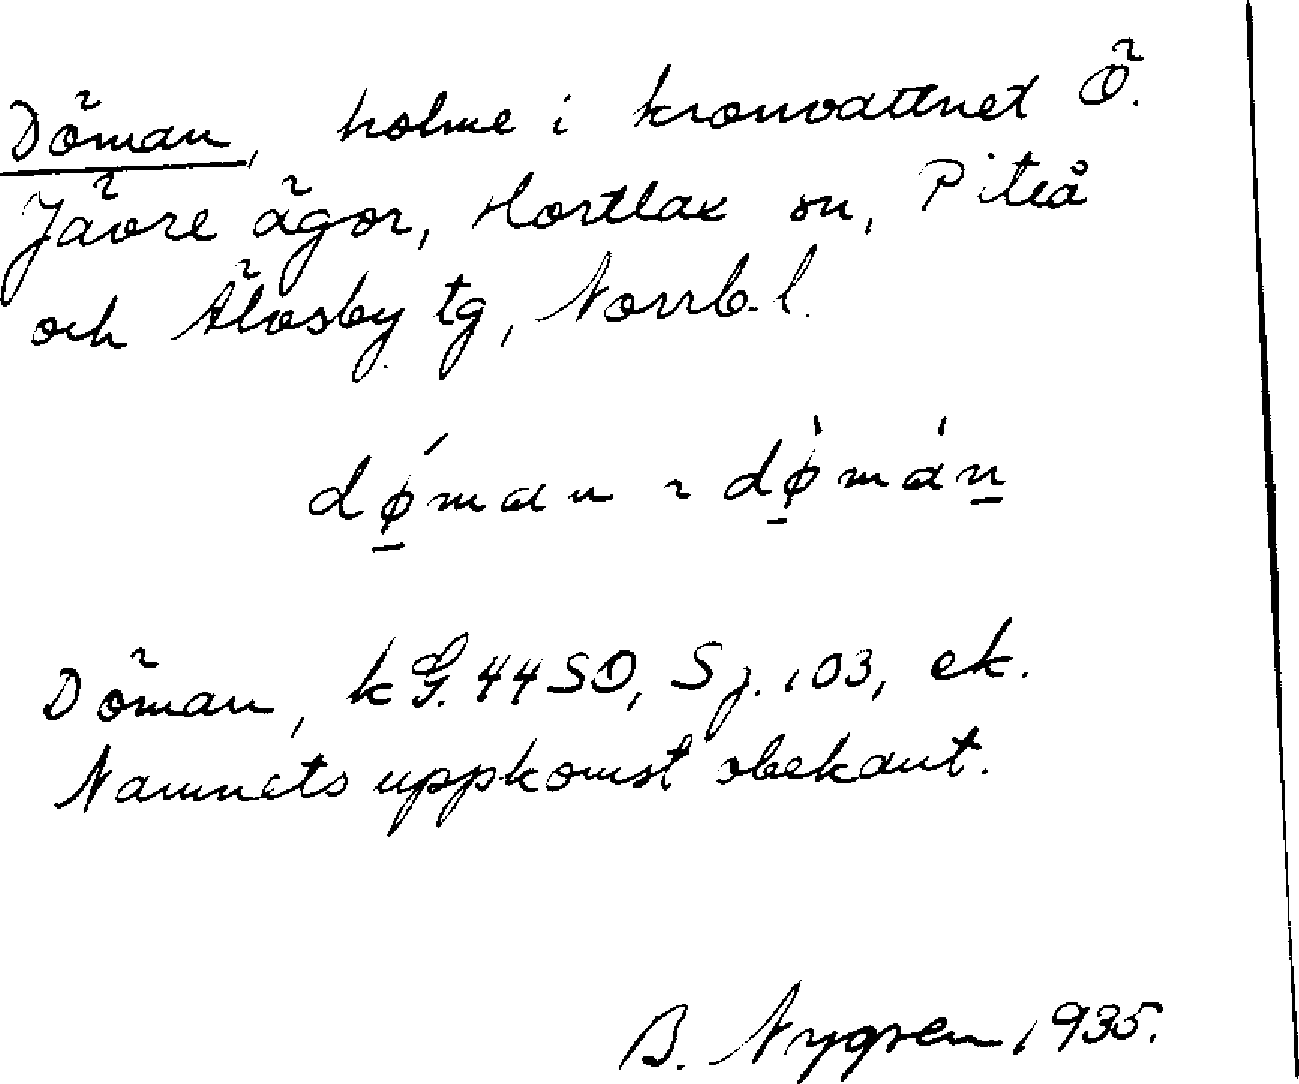 Döman, holme i kronvattnet Ö.
Jävre ägor, Hortlax sn, Piteå
och Älvsby tg, Norrb. l.
dǿ̱man ~ dø̱̀màṉ
Döman, kG. 44 SO, Sj. 103, ek.
Namnets uppkomst obekant.
B. Nygren 1935.